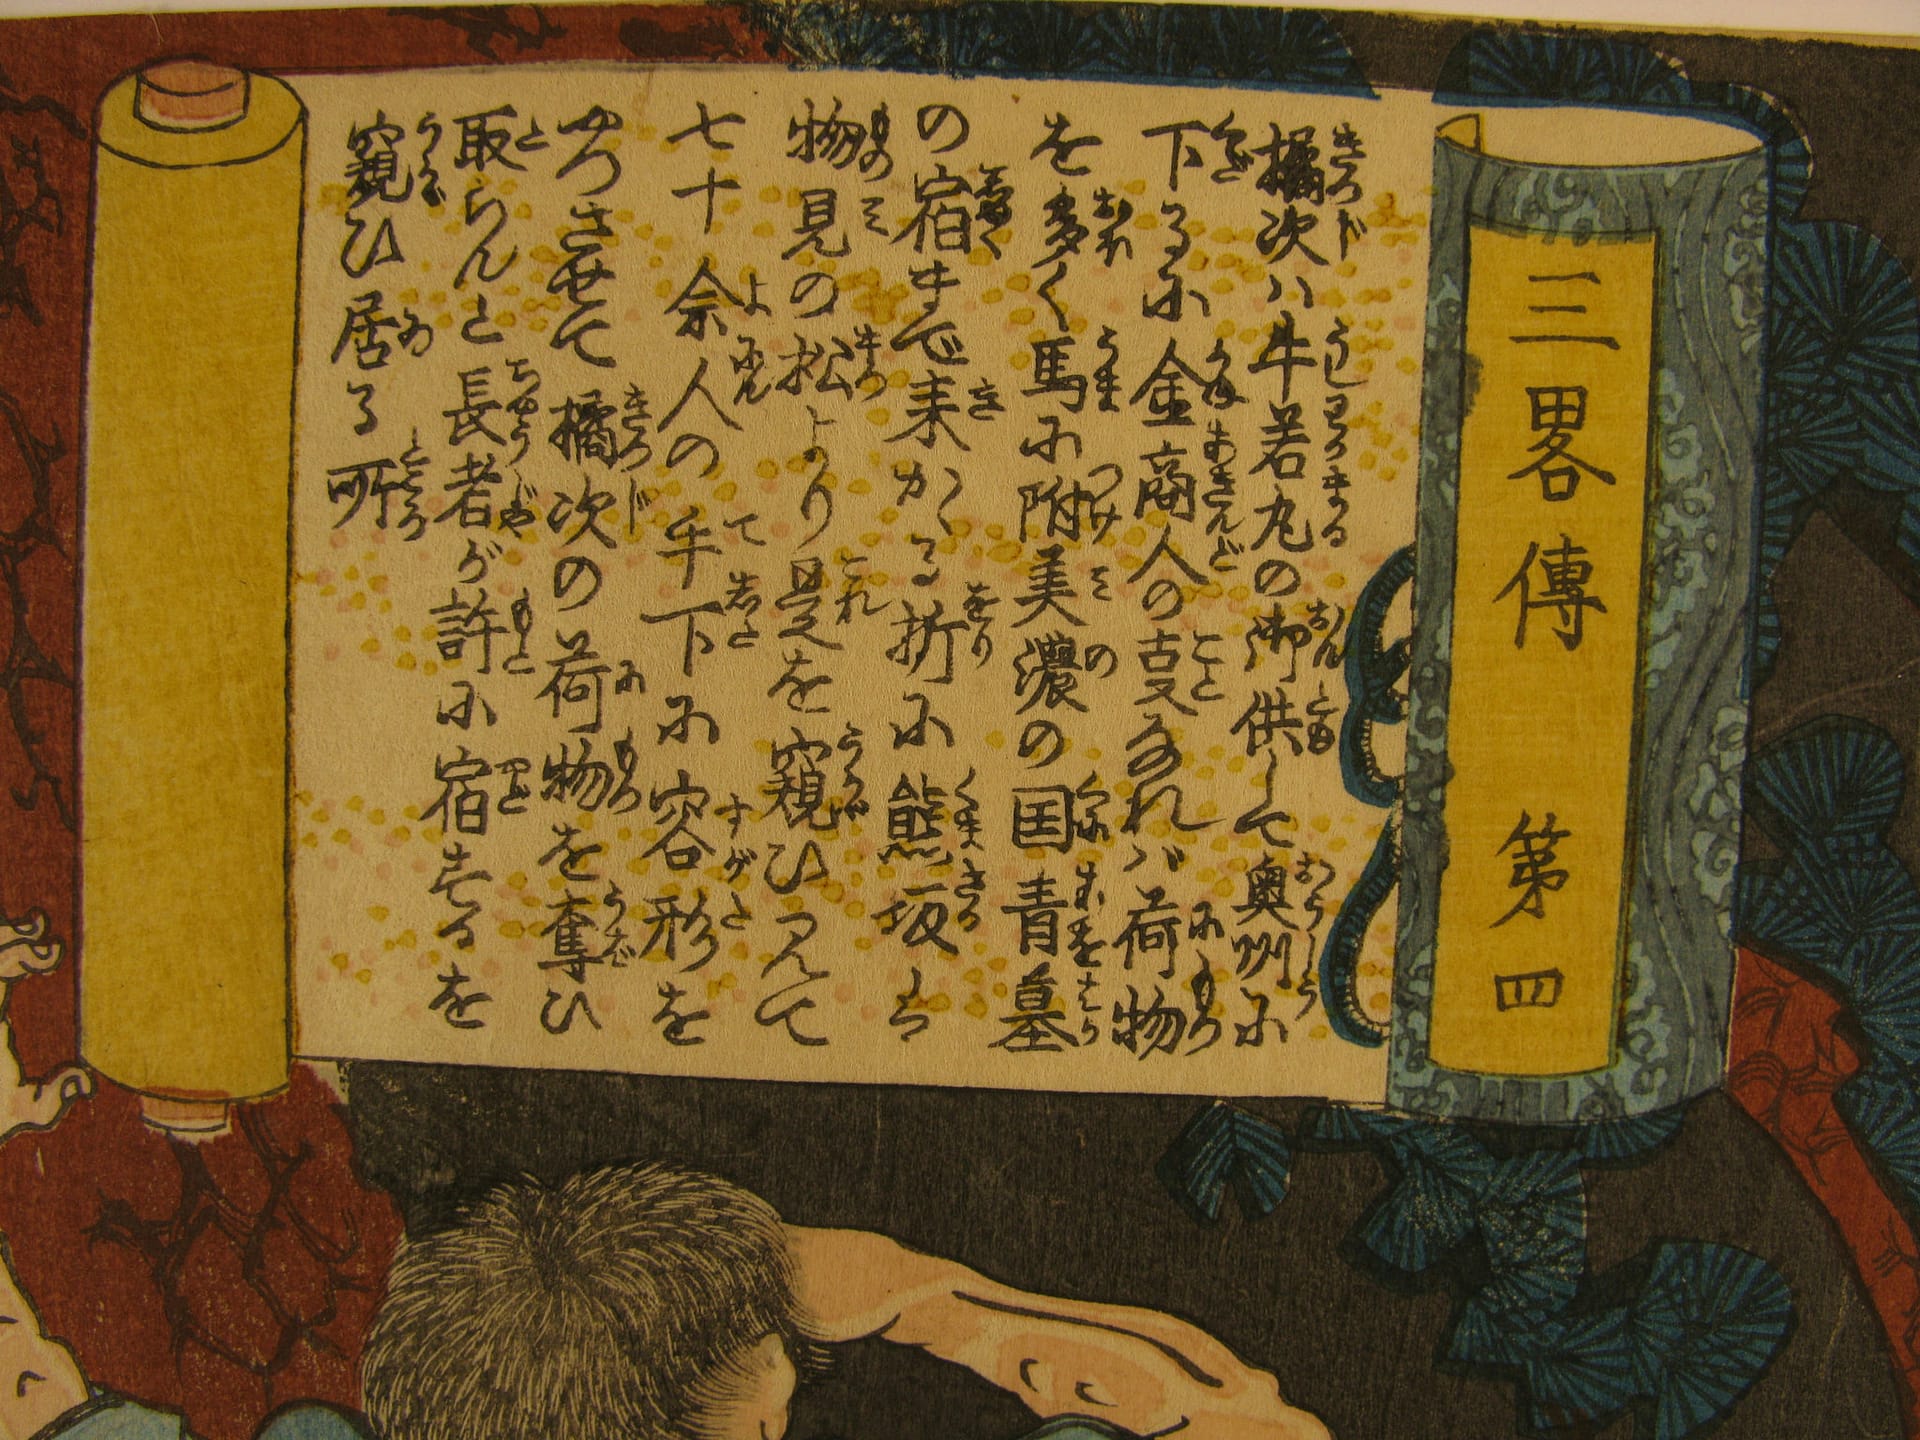 三畧傳 第四
橘次ハ牛若丸の御供して奥州に
下るに金商人の㕝なれバ荷物
を多く馬に附美濃の国青墓
の宿まで来かゝる折に熊坂ハ
物見の松より是を窺ひつれて
七十余人の手下に容形を
やつさせて橘次の荷物を奪ひ
取らんと長者が許に宿するを
窺ひ居る所